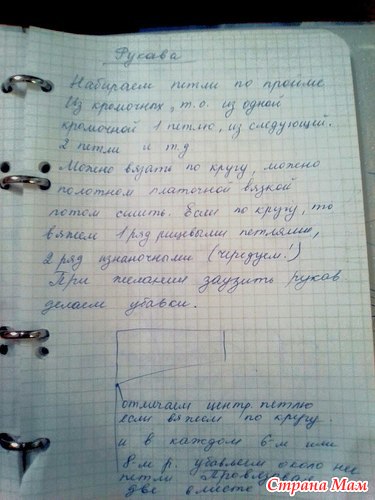 Рукава
Набираем петли по пройме
Из кромочных, т.о. из одной
кромочной 1 петлю, из следующей.
2 петли и т.д
Можно вязать по кругу, можно
полотном платочной вязкой
потом сшить. Если по кругу, то
вяжем 1 ряд лицевыми петлями,
2 ряд изнаночными (чередуем!)
При желании заузить рукав
делаем убавки.
отмечаем центр. петлю
если вяжем по кругу.
и в каждом 6-м или
8-м р. убавляем около нее
петли
две вместе
Страна Мам